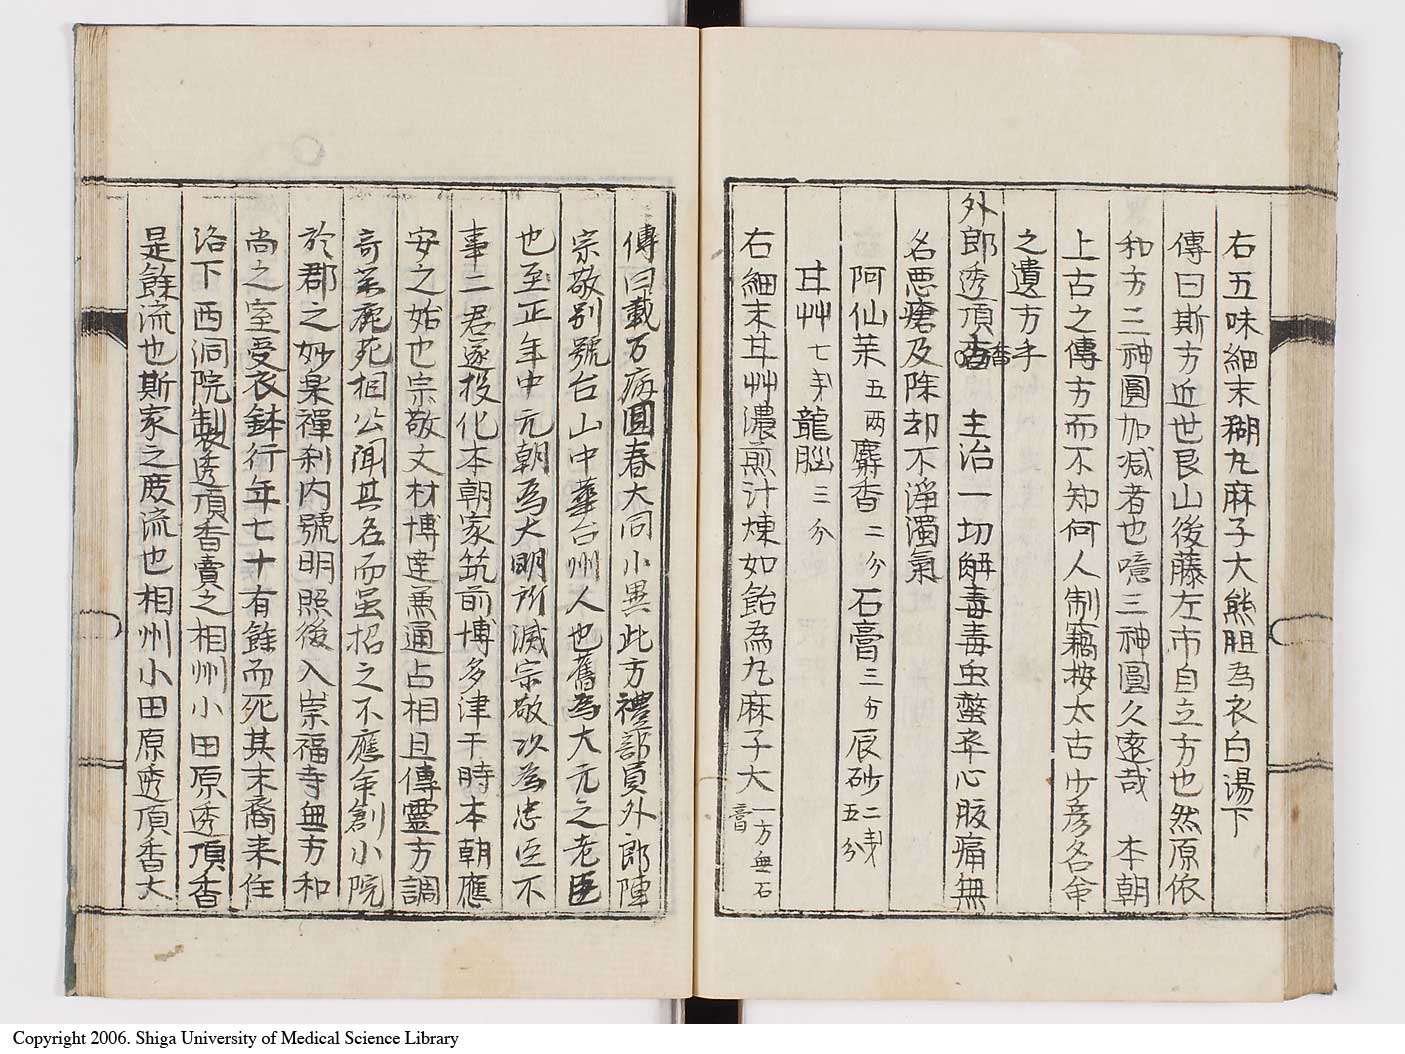 右五味細末糊丸麻子大熊胆為衣白湯下
傳曰斯方近世艮山後藤左市自立方也然原依
和方三神圓加減者也噫三神圓久遠哉 本朝
上古之傳方而不知何人制竊按太古少彦名命
之遺方乎
外郎透頂香 主治一切解毒毒虫螫卒心腹痛無
名悪瘡及除却不淨濁氣
阿仙茶五両麝香二分石膏三分辰砂二戔五分
甘艸七戔龍脳三分
右細末甘艸濃煎汁煉如飴為丸麻子大一方無石膏
傳曰載万病圓春大同小異此方禮部員外郎陳
宗敬別號台山中華台州人也舊為大元之老臣
也至正年中元朝為大明所滅宗敬以為忠臣不
事二君遂投化本朝家筑前博多津于時本朝應
安之始也宗敬文材博達兼通占相且傳靈方調
奇薬鹿苑相公聞其名而虽招之不應命創小院
於郡之妙楽禪刹内號明照後入崇福寺無方和
尚之室受衣鉢行年七十有餘而死其末裔来住
洛下西洞院製透頂香賣之相州小田原透頂香
是餘流也斯家之庶流也相州小田原透頂香大